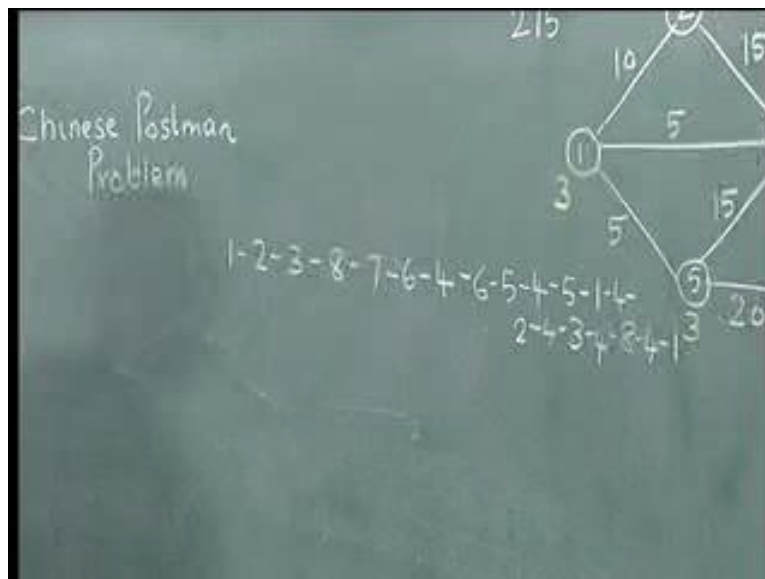 215
2
10
15
Chinese Postman
Problem
5
1
3
15
5
1-2-3-8-7-6-4-6-5-4-5-1-4-
5
20
2-4-3-4-8-4-1
3